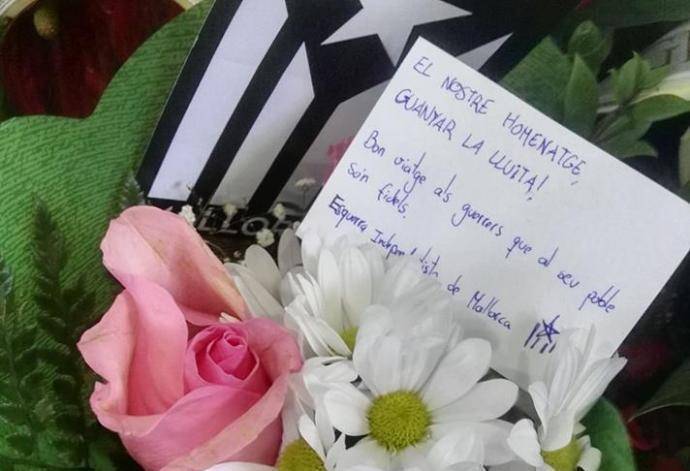 EL NOSTRE HOMENATGE,
GUANYAR LA LLUITA!
Bon viatge als guerrers que al seu poble
són fidels.
Esquerra Independentista de Mallorca